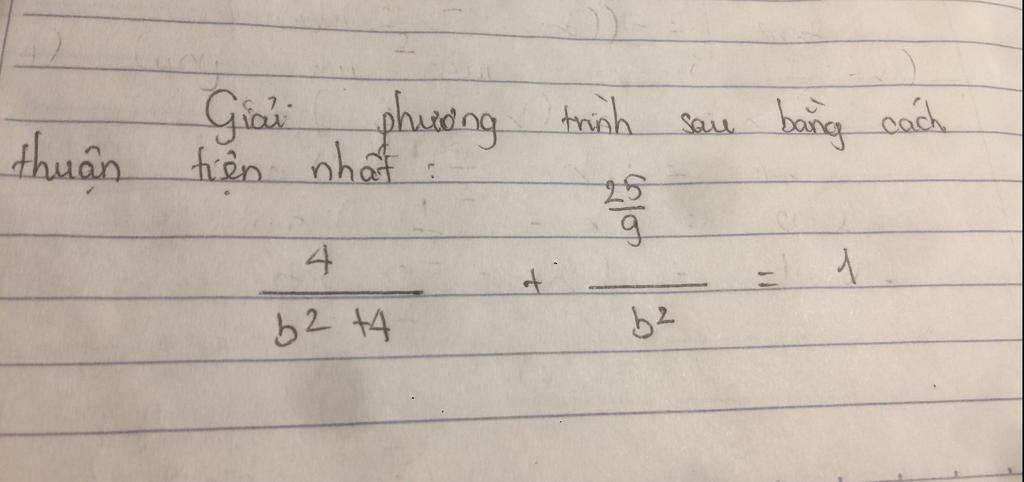 Giải phương trình sau bằng cách
thuận tiện nhất :
25
9
4 + = 1
b² + 4 b²